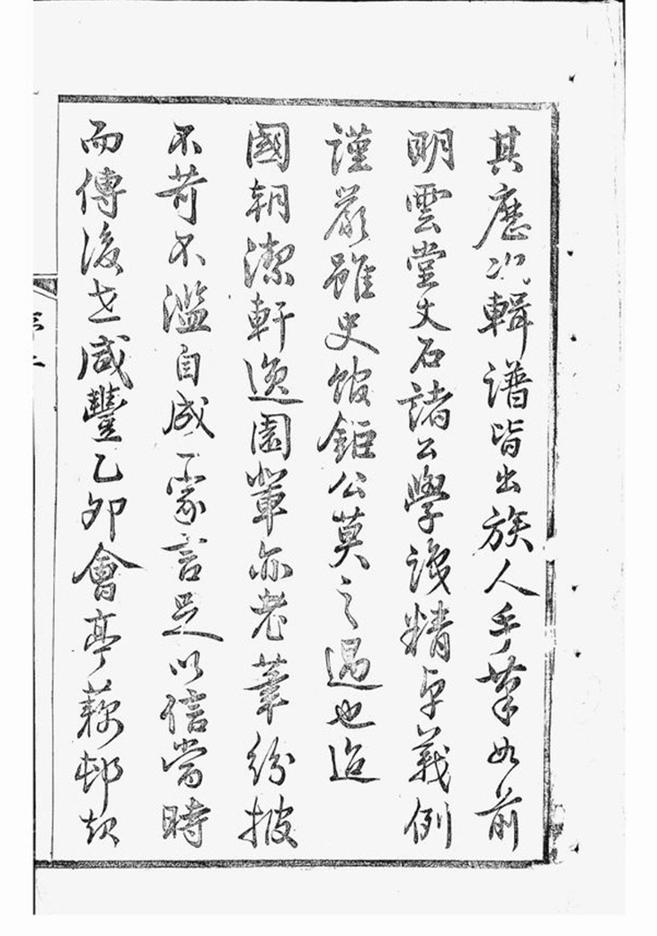 其歷次輯譜皆出族人手筆如前
明雲堂文石諸公學識精卓義例
謹嚴雖史館鉅公莫之過也迨
國朝潔軒逸園輩亦老筆紛披
不苛不濫自成一家言足以信當時
而傳後世咸豐乙卯會亭藕邨
序二